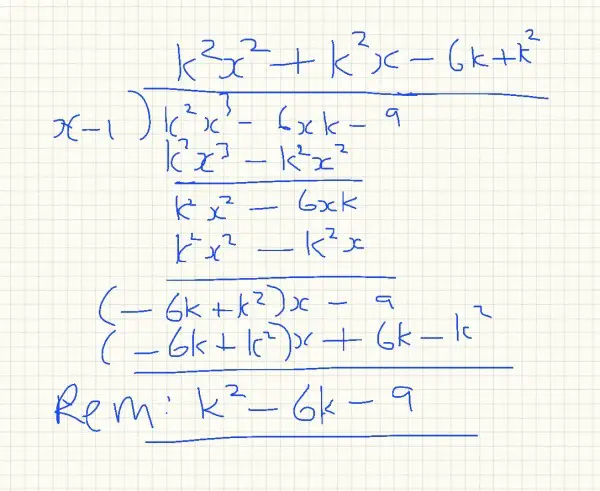 k²x² + k²x - 6k + k²
x - 1 ) k²x³ - 6xk - 9
k²x³ - k²x²
k²x² - 6xk
k²x² - k²x
(-6k + k²)x - 9
(-6k + k²)x + 6k - k²
Rem: k² - 6k - 9